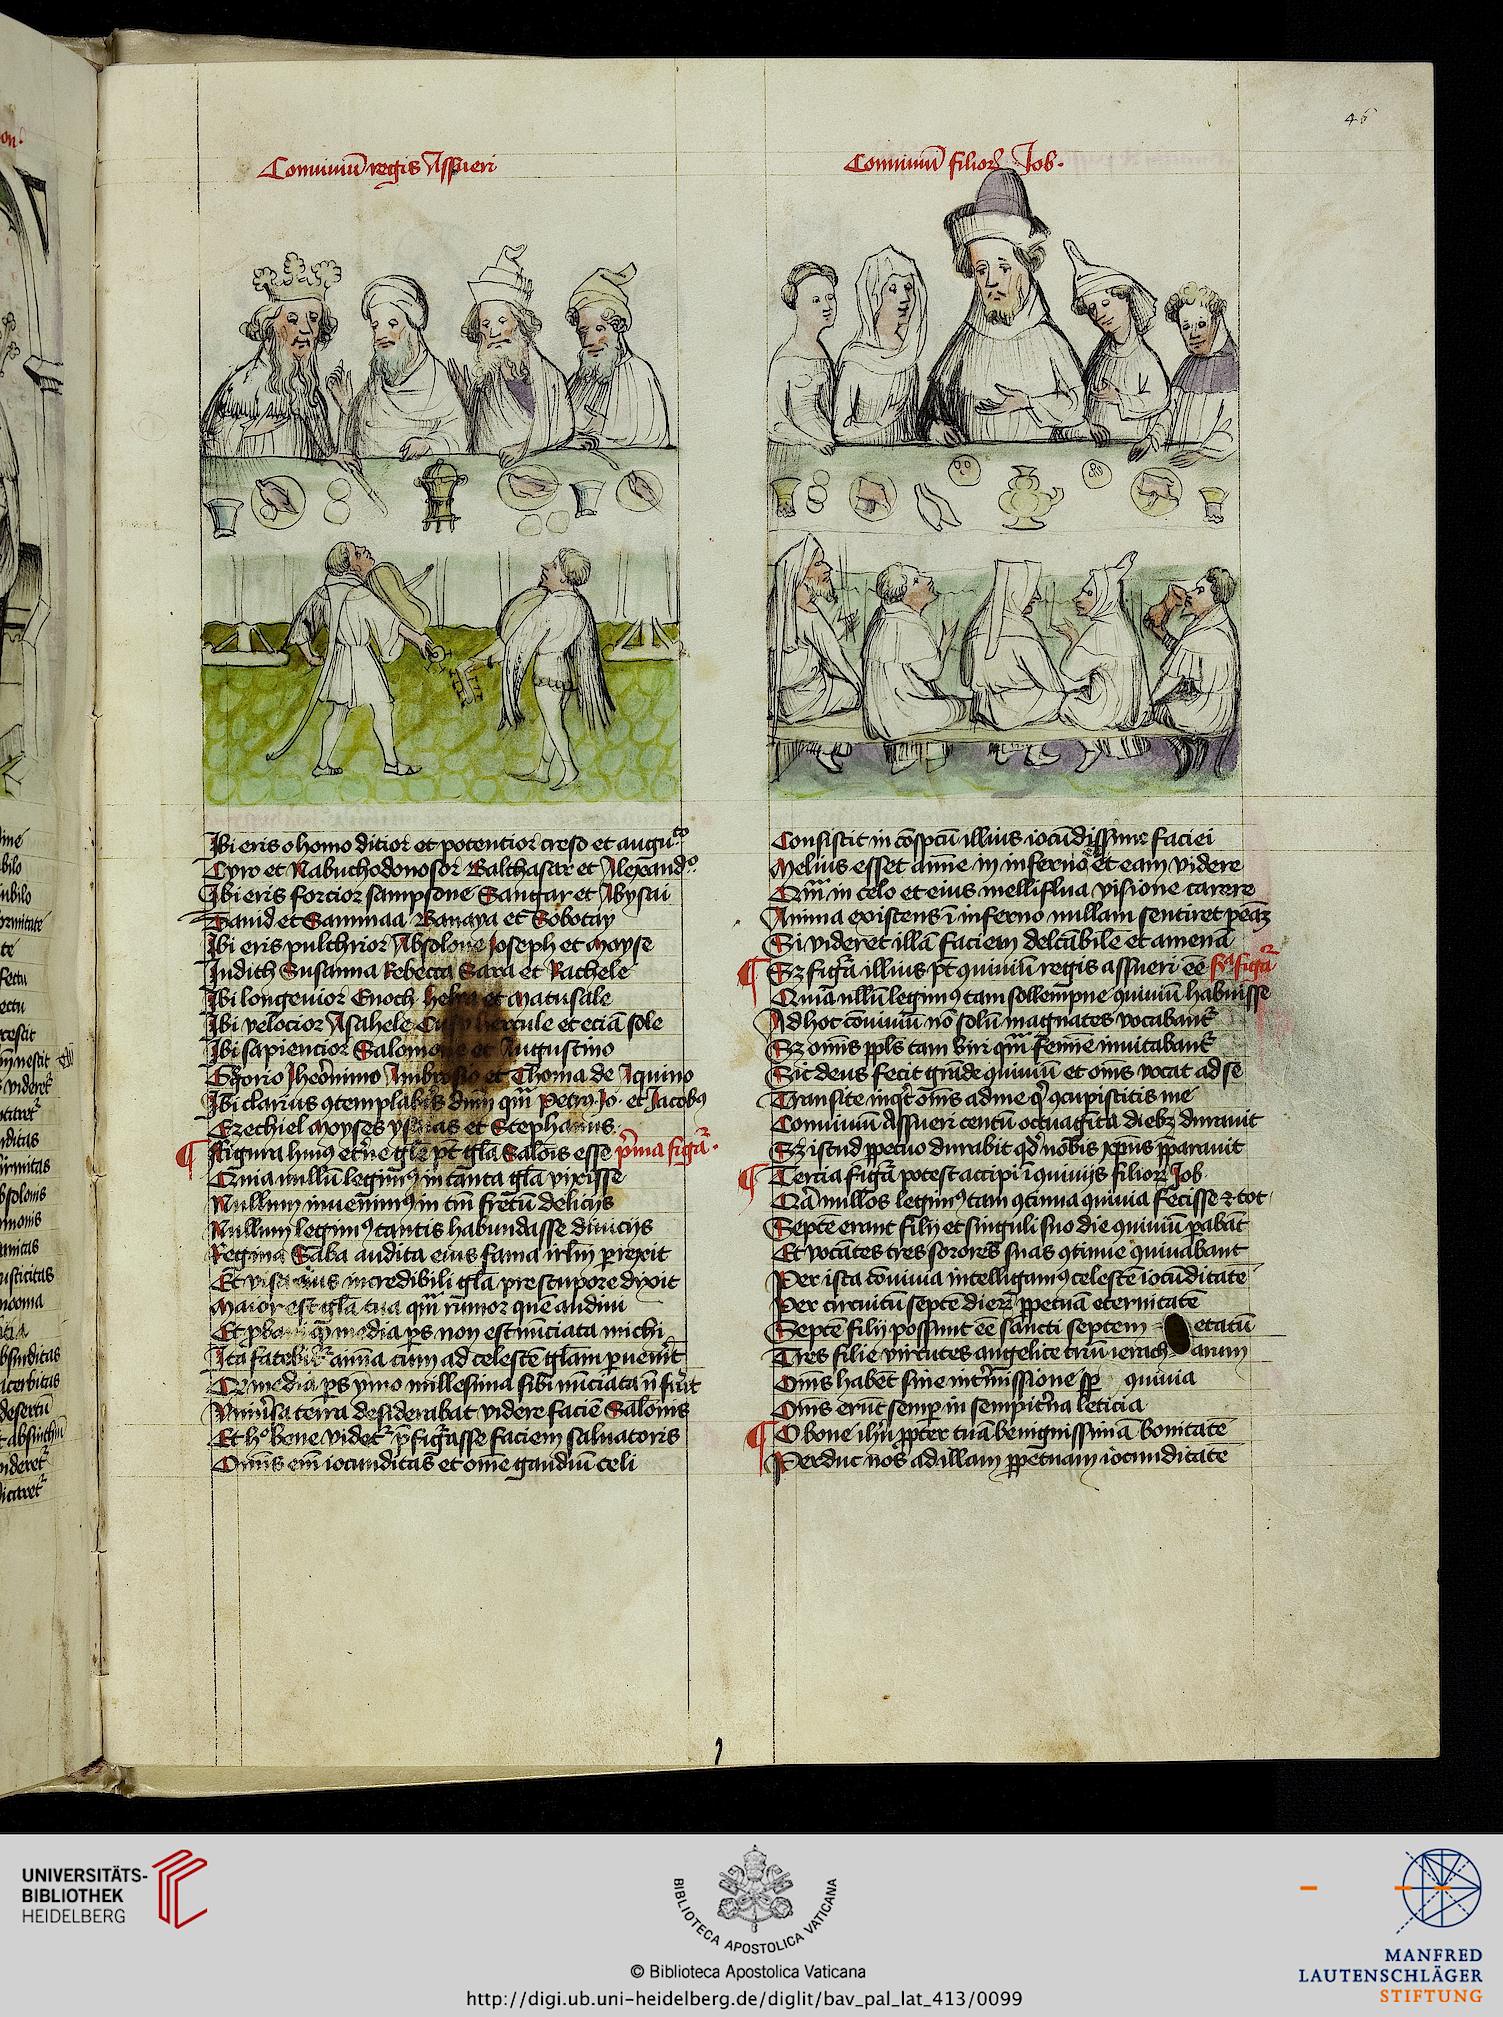 46
Conuiuiū regis Assueri
Ibi eris o homo ditior et potentior creso et augu.to
Cyro et Nabuchodonosor Balthasar et Alexandro
Ibi eris forcior sampsone Sangar et Abysai
Dauid et Sammaa Banaya et Sobocay
Ibi eris pulchrior Absolone Joseph et Moyse
Judith Susanna Rebecca Sara et Rachele
Ibi longeuior Enoch helya et Matusale
Ibi velocior Asahele Cusy hercule et eciā sole
Ibi sapiencior Salomone et Augustino
Ggorio Jheronimo Ambrosio et Thoma de Aquino
Ibi clarius ꝯtemplabis dnm qm̄ Petrꝰ Jo. et Jacobꝰ
Ezechiel Moyses ysaias et Stephanus.
Figura huiuꝰ etne glē pt gla Salois esse pma figa.
Quia nullū legimꝰ in tanta gla vixisse
Nullum inuenimꝰ in tm̄ fretū delicijs
Nullum legimꝰ tantis habundasse diuicijs
Regina Saba audita eius fama irlm perrexit
Et visa eius incredibili gla pre stupore dixit
Maior est gla tua qm̄ rumor quē audiui
Et media ps non est nūciata michi
Ita fatebitr aīma cum ad celestē glam puenit
Qd media ps ymo millesima sibi nūciata n̄ fuit
Vniūsa terra desiderabat videre faciē Salonis
Et hoc bene videtr pfigasse faciem saluatoris
Omīs em iocunditas et ome gaudiū celi
Conuiuiū filior Job.
Consistit in cōspcū illius iocūdissime faciei
Melius esset anime in inferno et eam videre
Qm̄ in celo et eius melliflua visione carere
Anima existens ī inferno nullam sentiret penā
Si videret illā faciem delcābilē et amenā
Sz figa illius pt ꝯuiuiū regis assueri eē sa figa
Quia nllū legimꝰ tam sollempne ꝯuiuiū habuisse
Ad hoc cōuiuiū nō solū magnates vocabant
Sz omīs ppls tam viri qm̄ femīe inuitabant
Sic deus fecit grāde ꝯuiuiū et omīs vocat ad se
Transite inqt omīs ad me q ꝯcupiscitis me
Conuiuiū Assueri centū octuagīta diebꝫ durauit
Sz istud ppetuo durabit qd nobis xpus pparauit
Tercia figa potest accipi ī ꝯuiuijs filior Job
Qa nullos legimꝰ tam ꝯtinua ꝯuiuia fecisse ⁊ tot
Septē erant filij et singuli suo die ꝯuiuiū pabāt
Et vocātes tres sorores suas ꝯtinue ꝯuiuabant
Per ista cōuiuia intelligamꝰ celestē iocūditatē
Per circuitū septē dierū ppetuā eternitatē
Septē filij possunt eē sancti septem etatū
Tres filie virtutes angelice triū ierarchiarum
Omīs habēt sine intmissione sp ꝯuiuia
Omīs erūt semp in sempitna leticia
O bone ihū ppter tuā benignissimā bonitatē
Perduc nos ad illam ppetuam iocunditatē
UNIVERSITÄTS-
BIBLIOTHEK
HEIDELBERG
BIBLIOTECA APOSTOLICA VATICANA
© Biblioteca Apostolica Vaticana
http://digi.ub.uni-heidelberg.de/diglit/bav_pal_lat_413/0099
MANFRED
LAUTENSCHLÄGER
STIFTUNG